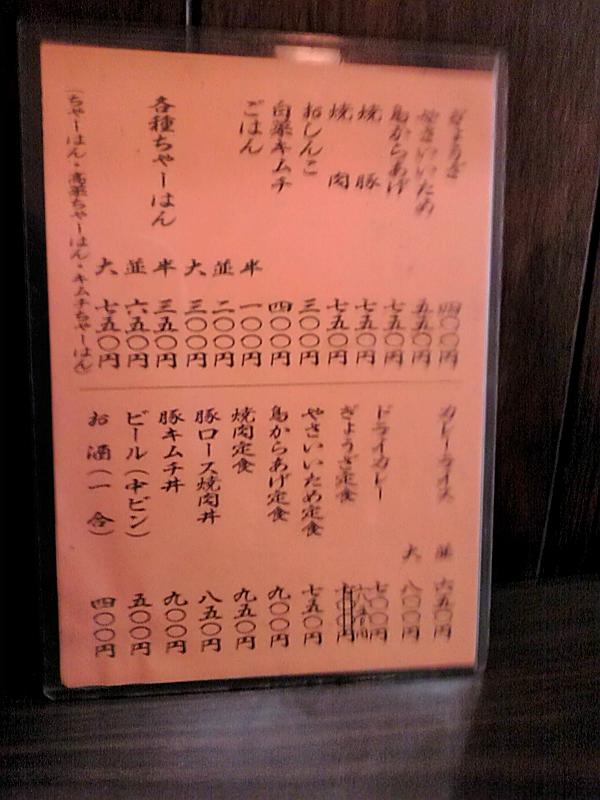 ぎょうざ 四〇〇円
やさいいため 五五〇円
鳥からあげ 七五〇円
焼豚 七五〇円
焼肉 七五〇円
おしんこ 三〇〇円
白菜キムチ 四〇〇円
ごはん 半 一〇〇円
並 二〇〇円
大 三〇〇円
各種ちゃーはん 半 三五〇円
並 六五〇円
大 七五〇円
（ちゃーはん・高菜ちゃーはん・キムチちゃーはん）
カレーライス 並 六五〇円
大 八〇〇円
ドライカレー 七〇〇円
ぎょうざ定食
やさいいため定食 七五〇円
鳥からあげ定食 九〇〇円
焼肉定食 九五〇円
豚ロース焼肉丼 八五〇円
豚キムチ丼 九〇〇円
ビール（中ビン） 五〇〇円
お酒（一合） 四〇〇円